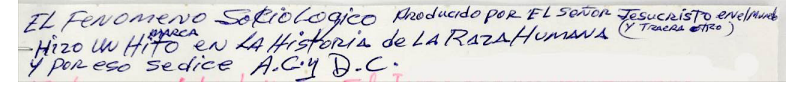 EL FENOMENO SOCIOLOGICO PRODUCIDO POR EL SEÑOR JESUCRISTO en el Mundo
- HIZO UN HITO MARCA EN LA HISTORIA de LA RAZA HUMANA (Y TRAERA OTRO)
Y POR ESO SE DICE A.C. Y D.C.